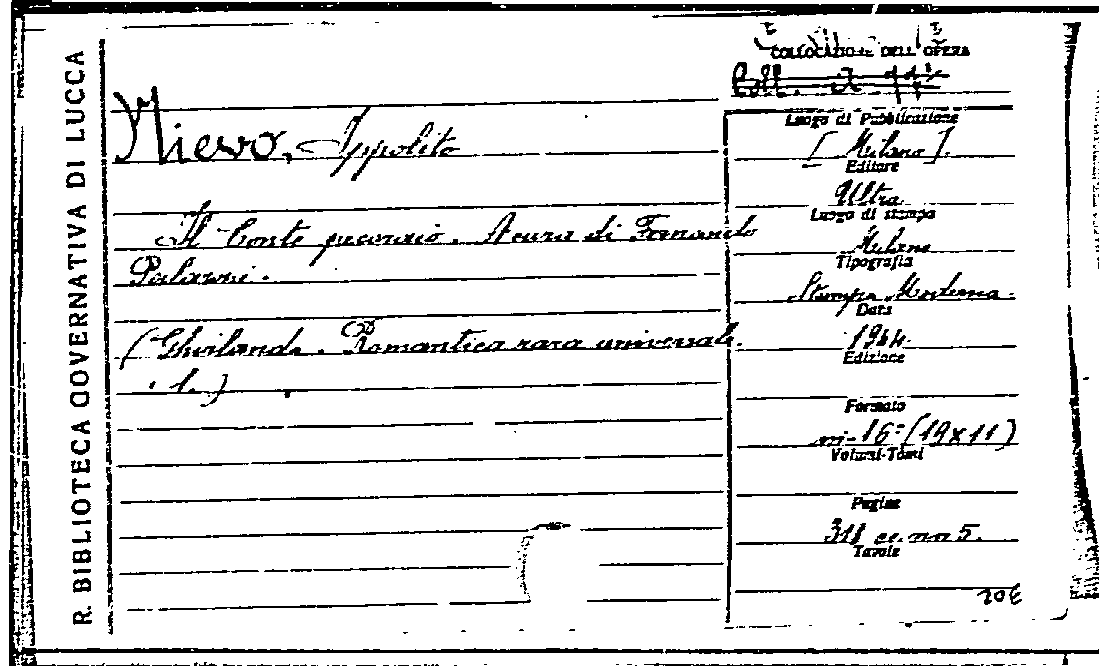 R. BIBLIOTECA GOVERNATIVA DI LUCCA
COLLOCAZIONE DELL'OPERA
Coll.
Nievo, Ippolito
Il Conte pecoraio. A cura di Fernando
Palazzi.
(Ghirlanda. Romantica rara universale.
1.)
Luogo di Pubblicazione
[Milano].
Editore
Ultra
Luogo di stampa
Milano
Tipografia
Stampa Moderna.
Data
1944.
Edizione
Formato
in-16° (19x11)
Volumi-Tomi
Pagine
311 cc. nn 5.
Tavole